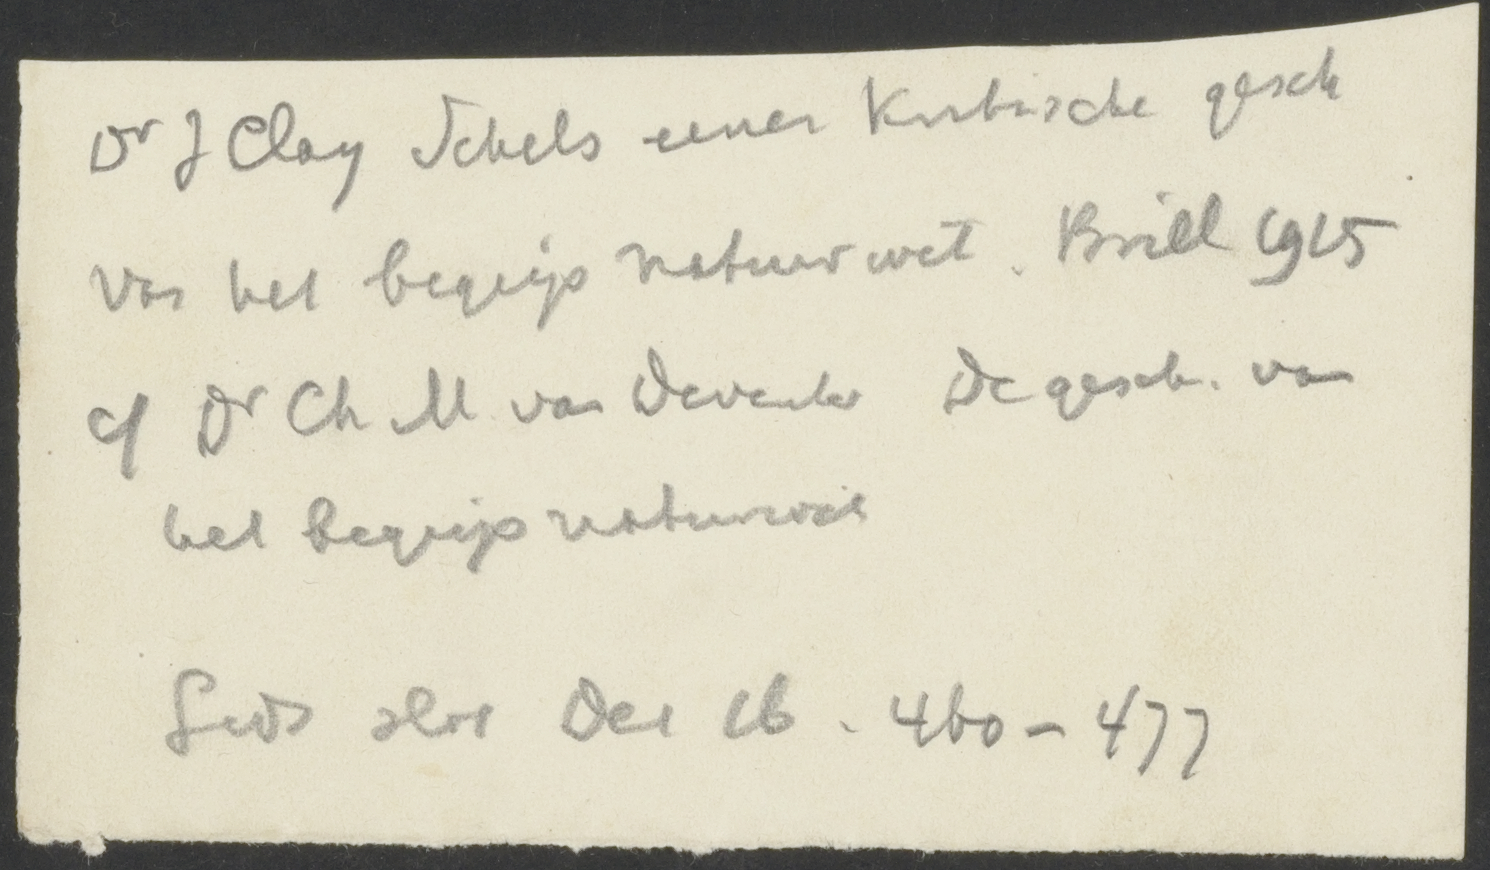 Dr J Clay Schets eener Kritische gesch
van het begrip natuurwet. Brill 1915
cf Dr Ch M. van Deventer De gesch. van
het begrip natuurwet
Gids Dec 16. 460-477